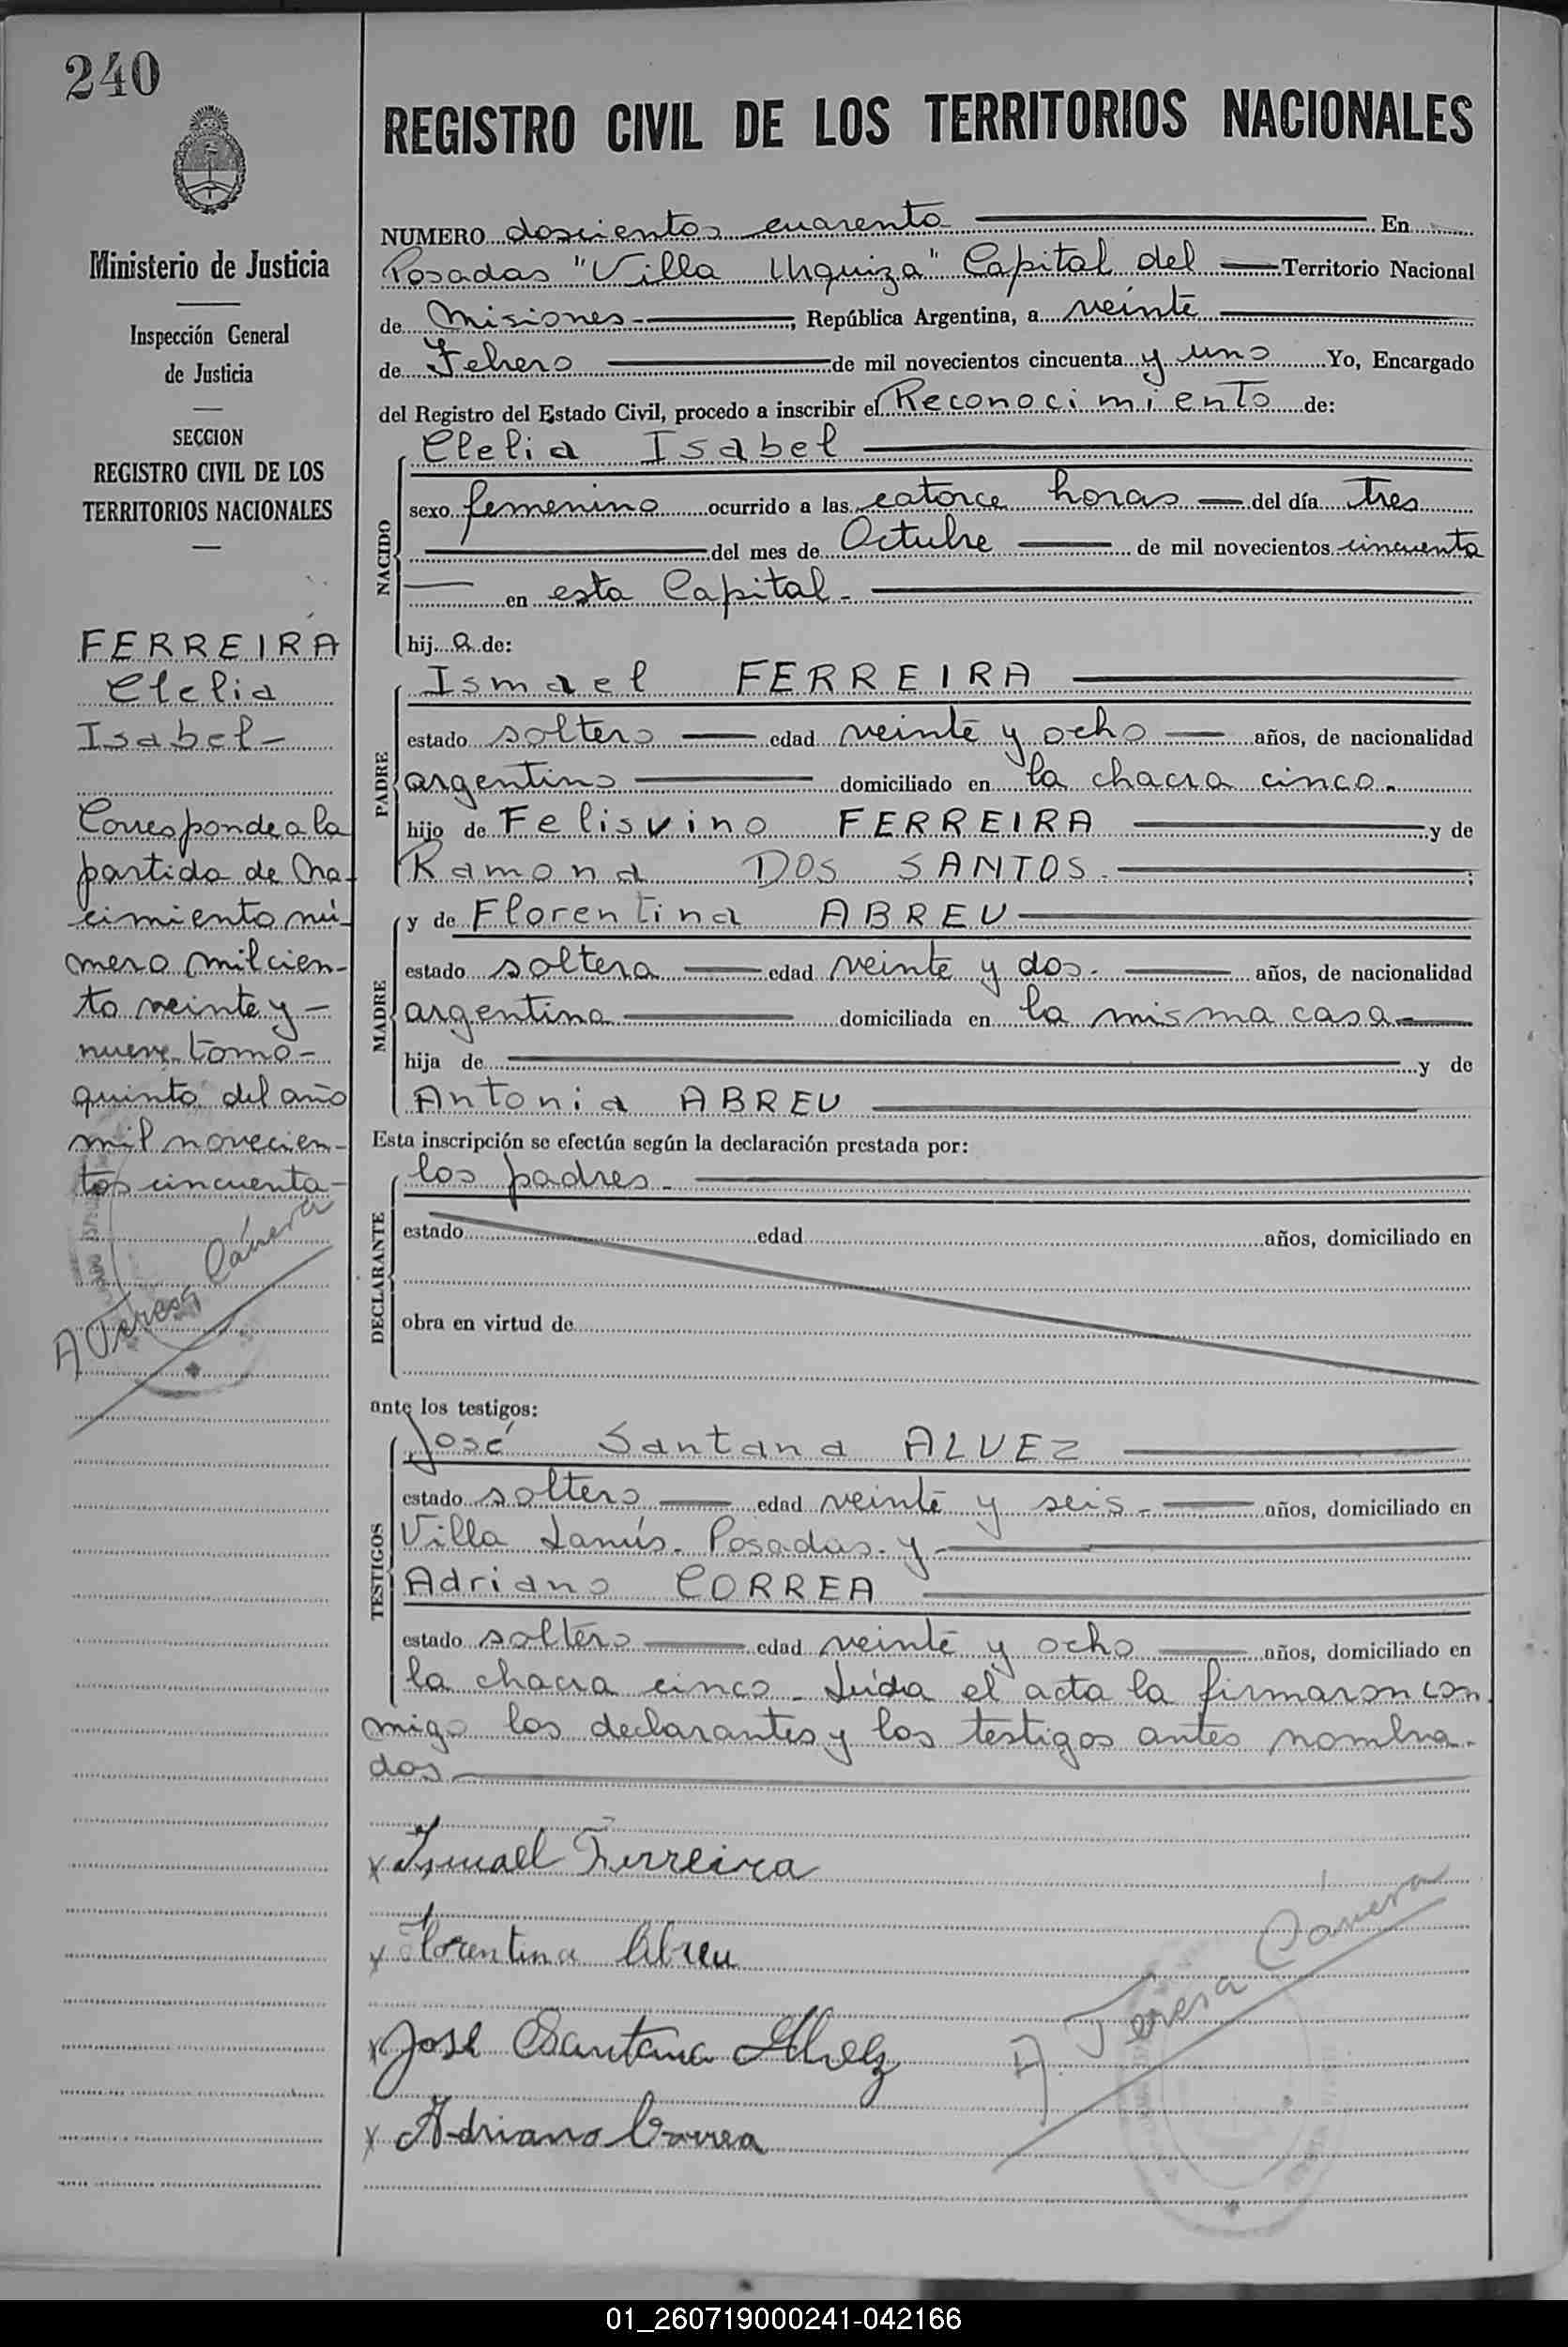 240
Ministerio de Justicia
Inspección General
de Justicia
SECCION
REGISTRO CIVIL DE LOS
TERRITORIOS NACIONALES
FERREIRA
Clelia
Isabel-
Corresponde a la
partida de Na-
cimiento nú-
mero mil cien-
to veinte y -
nueve tomo -
quinto del año
mil novecien-
tos cincuenta-
A Teresa Cánera
REGISTRO CIVIL DE LOS TERRITORIOS NACIONALES
NUMERO doscientos cuarenta En
Posadas "Villa Urquiza" Capital del Territorio Nacional
de Misiones - , República Argentina, a veinte
de Febrero de mil novecientos cincuenta y uno Yo, Encargado
del Registro del Estado Civil, procedo a inscribir el Reconocimiento de:
NACIDO
Clelia Isabel
sexo femenino ocurrido a las catorce horas del día tres
del mes de Octubre de mil novecientos cincuenta
en esta Capital -
hij a de:
PADRE
Ismael FERREIRA
estado soltero edad veinte y ocho años, de nacionalidad
argentino domiciliado en la chacra cinco.
hijo de Felisvino FERREIRA y de
Ramona DOS SANTOS - ;
MADRE
y de Florentina ABREU
estado soltera edad veinte y dos - años, de nacionalidad
argentina domiciliada en la misma casa
hija de y de
Antonia ABREU
Esta inscripción se efectúa según la declaración prestada por:
DECLARANTE
los padres -
estado edad años, domiciliado en
obra en virtud de
ante los testigos:
TESTIGOS
José Santana ALVEZ
estado soltero edad veinte y seis - años, domiciliado en
Villa Lanús - Posadas - y -
Adriano CORREA
estado soltero edad veinte y ocho años, domiciliado en
la chacra cinco - Leída el acta la firmaron con
migo los declarantes y los testigos antes nombra-
dos
x Ismael Ferreira
x Florentina Abreu
x José Santana Alvez
x Adriano Correa
A. Teresa Cánera
01_260719000241-042166